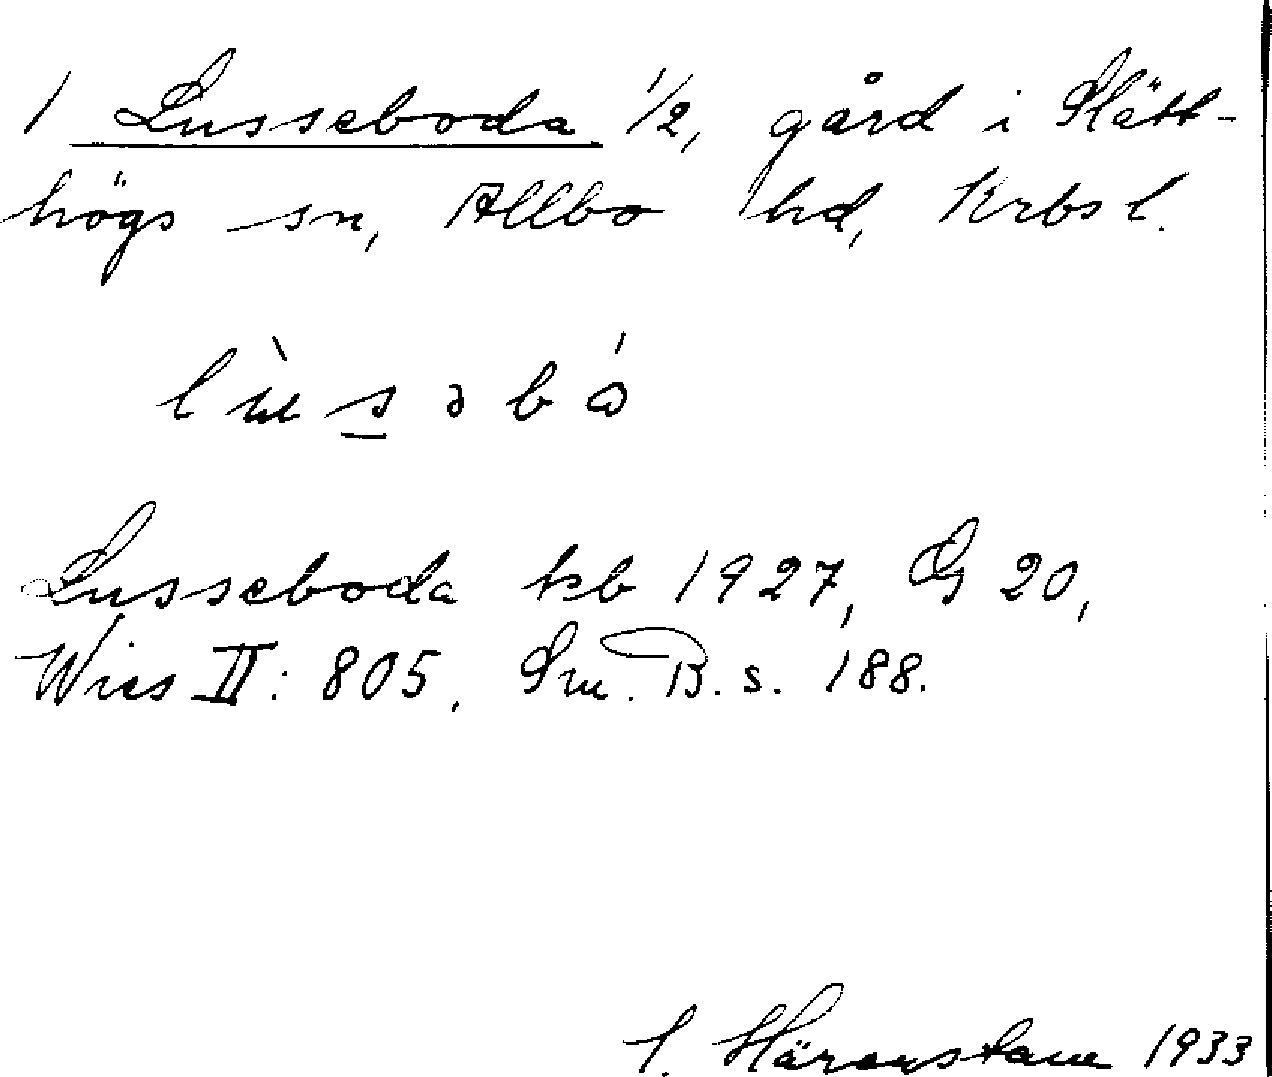 1 Lusseboda 1/2, gård i Slätt-
högs sn, Allbo hd, Krbs l.
lùsəbó
Lusseboda kb 1927, G 20,
Wies II: 805, Sm. B. s. 188.
1933